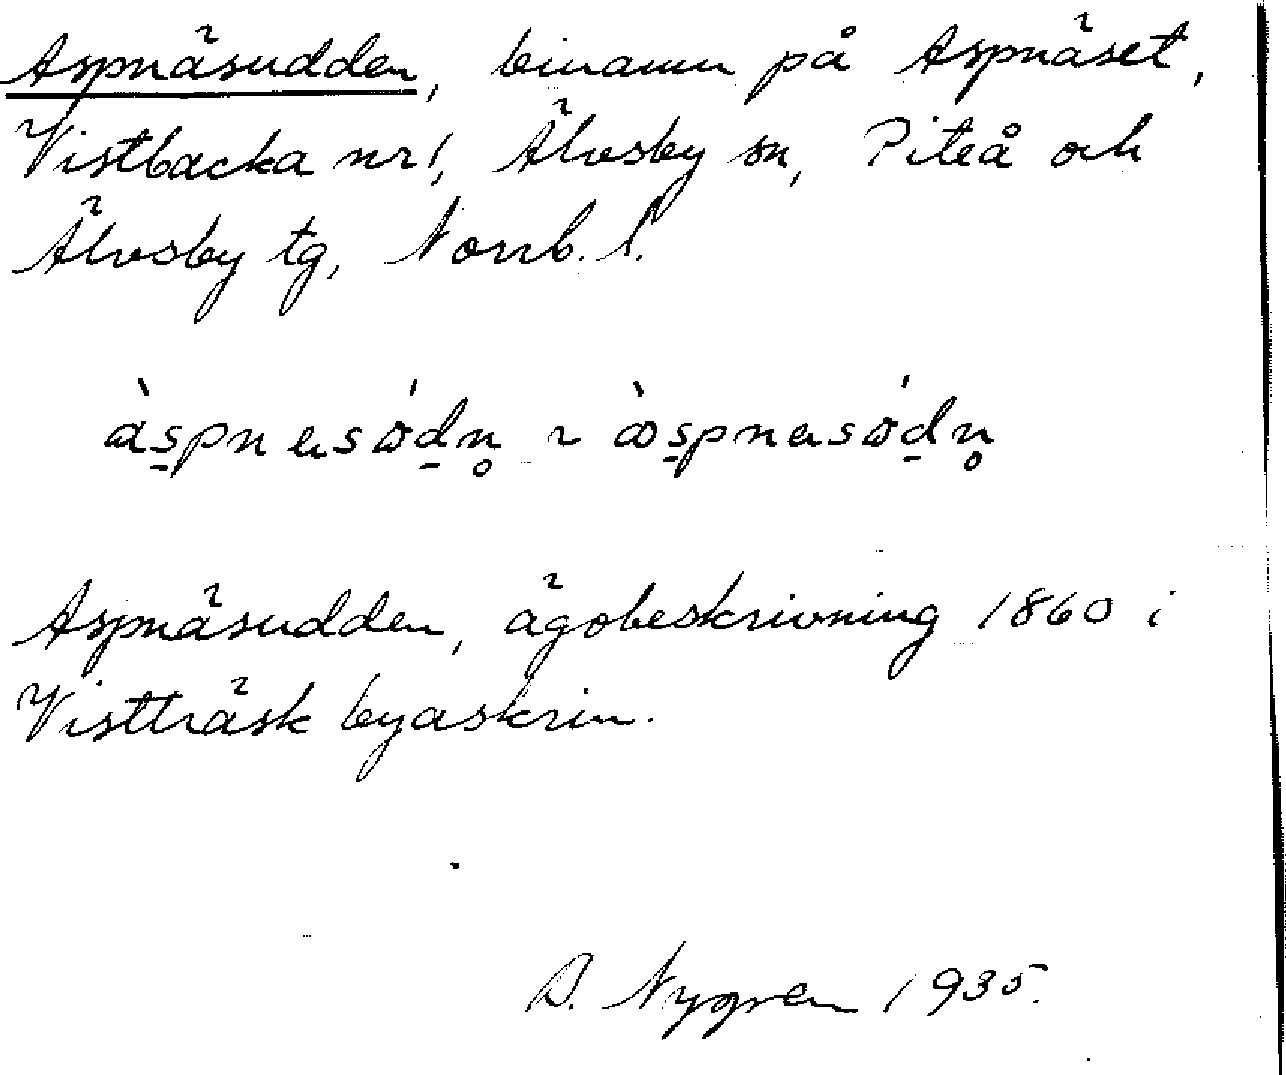 Aspnäsudden, binamn på Aspnäset,
Vistbacka nr 1, Älvsby sn, Piteå och
Älvsby tg, Norrb. l.
àspnasó̈dn̥ ~ àspnasó̈dn̥
Aspnäsudden, ägobeskrivning 1860 i
Vistträsk byaskrin.
D. Nygren 1935.